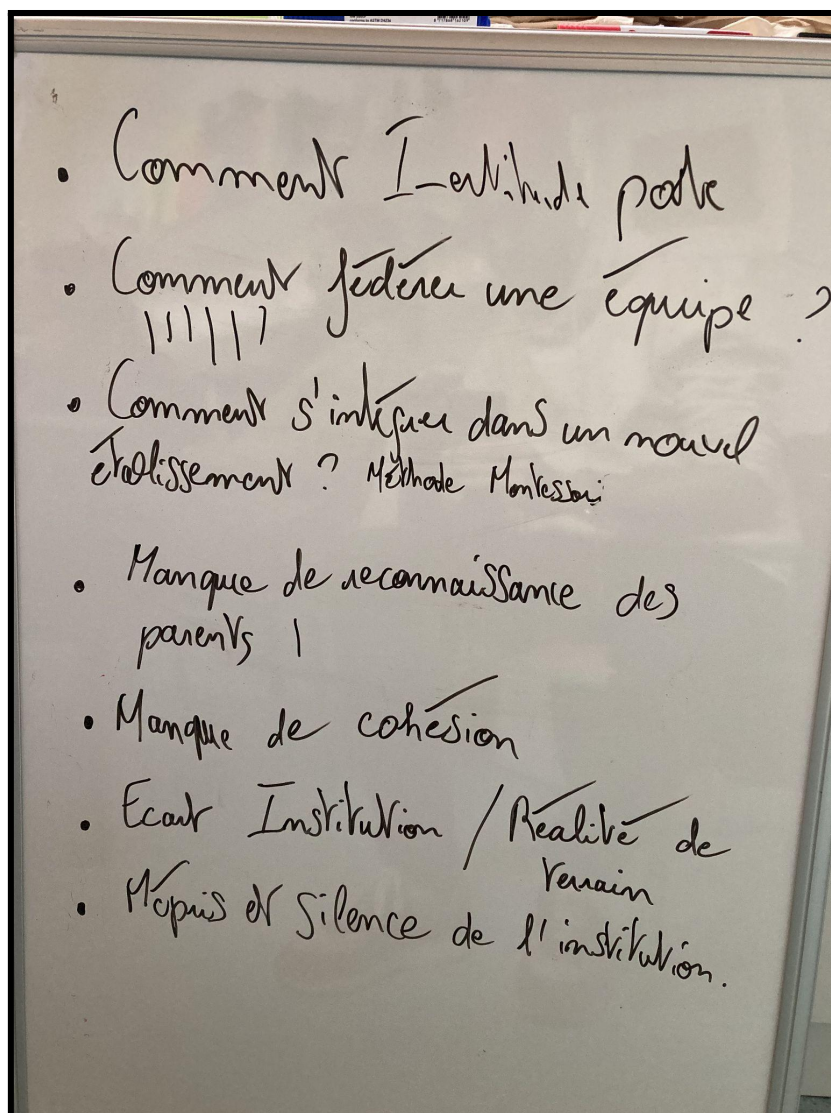 • Comment
• Comment fédérer une équipe ?
• Comment s'intégrer dans un nouvel
établissement ? Méthode Montessori
• Manque de reconnaissance des
parents |
• Manque de cohésion
• Ecart Institution / Réalité de
terrain
• Mépris et silence de l'institution.